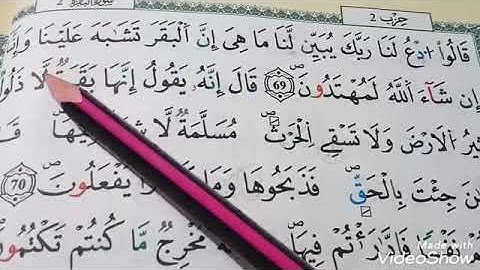 حزب 2
قَالُواْ ادْعُ لَنَا رَبَّكَ يُبَيِّن لَّنَا مَا هِيَ إِنَّ اَلْبَقَرَ تَشَٰبَهَ عَلَيْنَا وَإِنَّا
إِن شَآءَ اَللَّهُ لَمُهْتَدُونَ 69 قَالَ إِنَّهُۥ يَقُولُ إِنَّهَا بَقَرَةٞ لَّا ذَلُولٞ
تُثِيرُ اُلَارْضَ وَلَا تَسْقِے اِلْحَرْثَ مُسَلَّمَةٞ لَّا فِيهَا
جِئْتَ بِالْحَقِّ فَذَبَحُوهَا وَمَا يَفْعَلُونَ 70
فَادَّٰرَأْتُمْ فِيهَا مُخْرِجٞ مَّا كُنتُمْ تَكْتُمُونَ
Made with
VideoShow